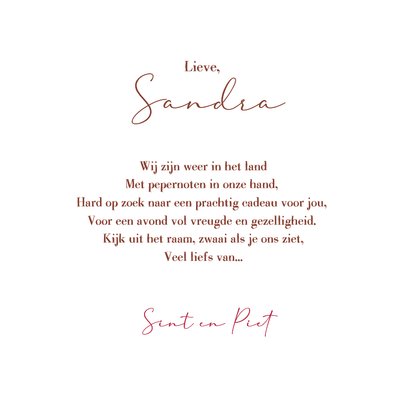 Lieve,
Sandra
Wij zijn weer in het land
Met pepernoten in onze hand,
Hard op zoek naar een prachtig cadeau voor jou,
Voor een avond vol vreugde en gezelligheid.
Kijk uit het raam, zwaai als je ons ziet,
Veel liefs van...
Sint en Piet